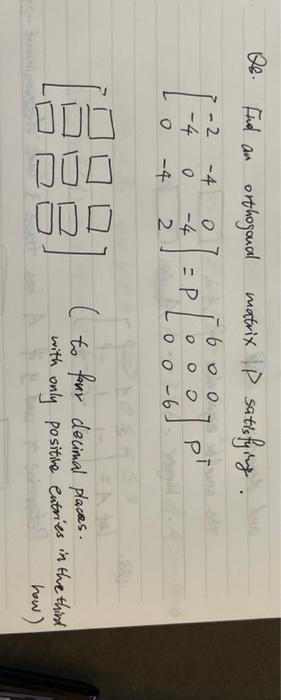 Q6. Find an orthogonal matrix P satisfying.
[ -2 -4 0
-4 0 -4
0 -4 2 ] = P [ 6 0 0
0 0 0
0 0 -6 ] P^T
[ □ □ □
□ □ □
□ □ □ ]
( to four decimal places.
with only positive entries in the third
row)